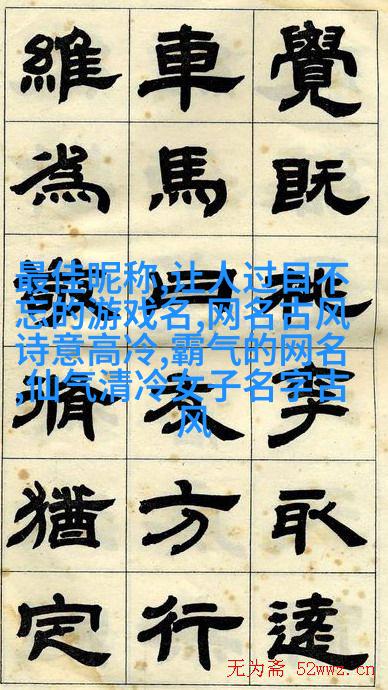 覺既取達
車馬方行
維為猶定
最佳昵称,让人过目不
忘的游戏名,网名古风
诗意高冷,霸气的网名
,仙气清冷女子名字古
风
无为斋 52wwz.cn